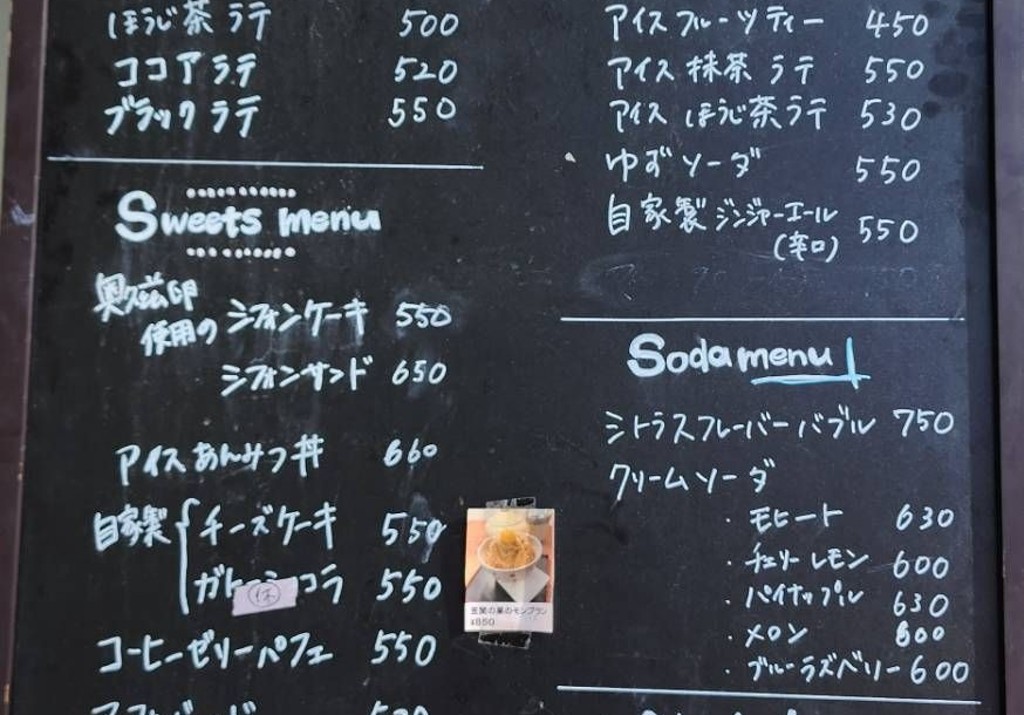 ほうじ茶ラテ 500
ココアラテ 520
ブラックラテ 550
Sweets menu
奥久慈卵
使用の シフォンケーキ 550
シフォンサンド 650
アイスあんみつ丼 660
自家製 チーズケーキ 550
ガトーショコラ 550
休
コーヒーゼリーパフェ 550
笠間の栗のモンブラン
¥850
アイスフルーツティー 450
アイス抹茶ラテ 550
アイスほうじ茶ラテ 530
ゆずソーダ 550
自家製ジンジャーエール 550
(辛口)
Soda menu
シトラスフレーバーバブル 750
クリームソーダ
・モヒート 630
・チェリーレモン 600
・パイナップル 630
・メロン 600
・ブルーラズベリー 600